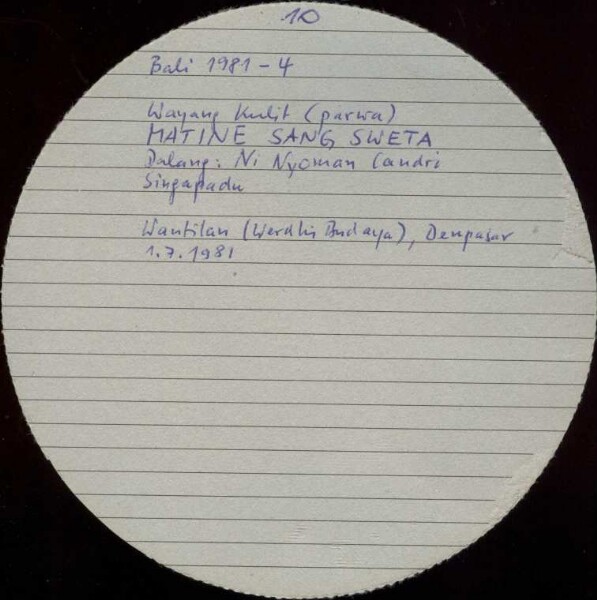 10
Bali 1981 - 4
Wayang Kulit (parwa)
MATINE SANG SWETA
Dalang: Ni Nyoman Candri
Singapadu
Wantilan (Werdhi Budaya), Denpasar
1.7.1981